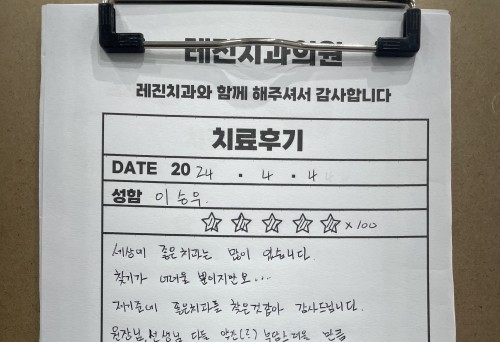 레진치과의원
레진치과와 함께 해주셔서 감사합니다
치료후기
DATE 2024 . 4 . 4
성함 이승우
x100
세상에 좋은치과는 많이 있습니다.
찾기가 어려울 뿐이지만요...
좋은치과를 찾은것같아 감사드립니다.
원장님,선생님 다들 약간(?) 부담스러울 만큼